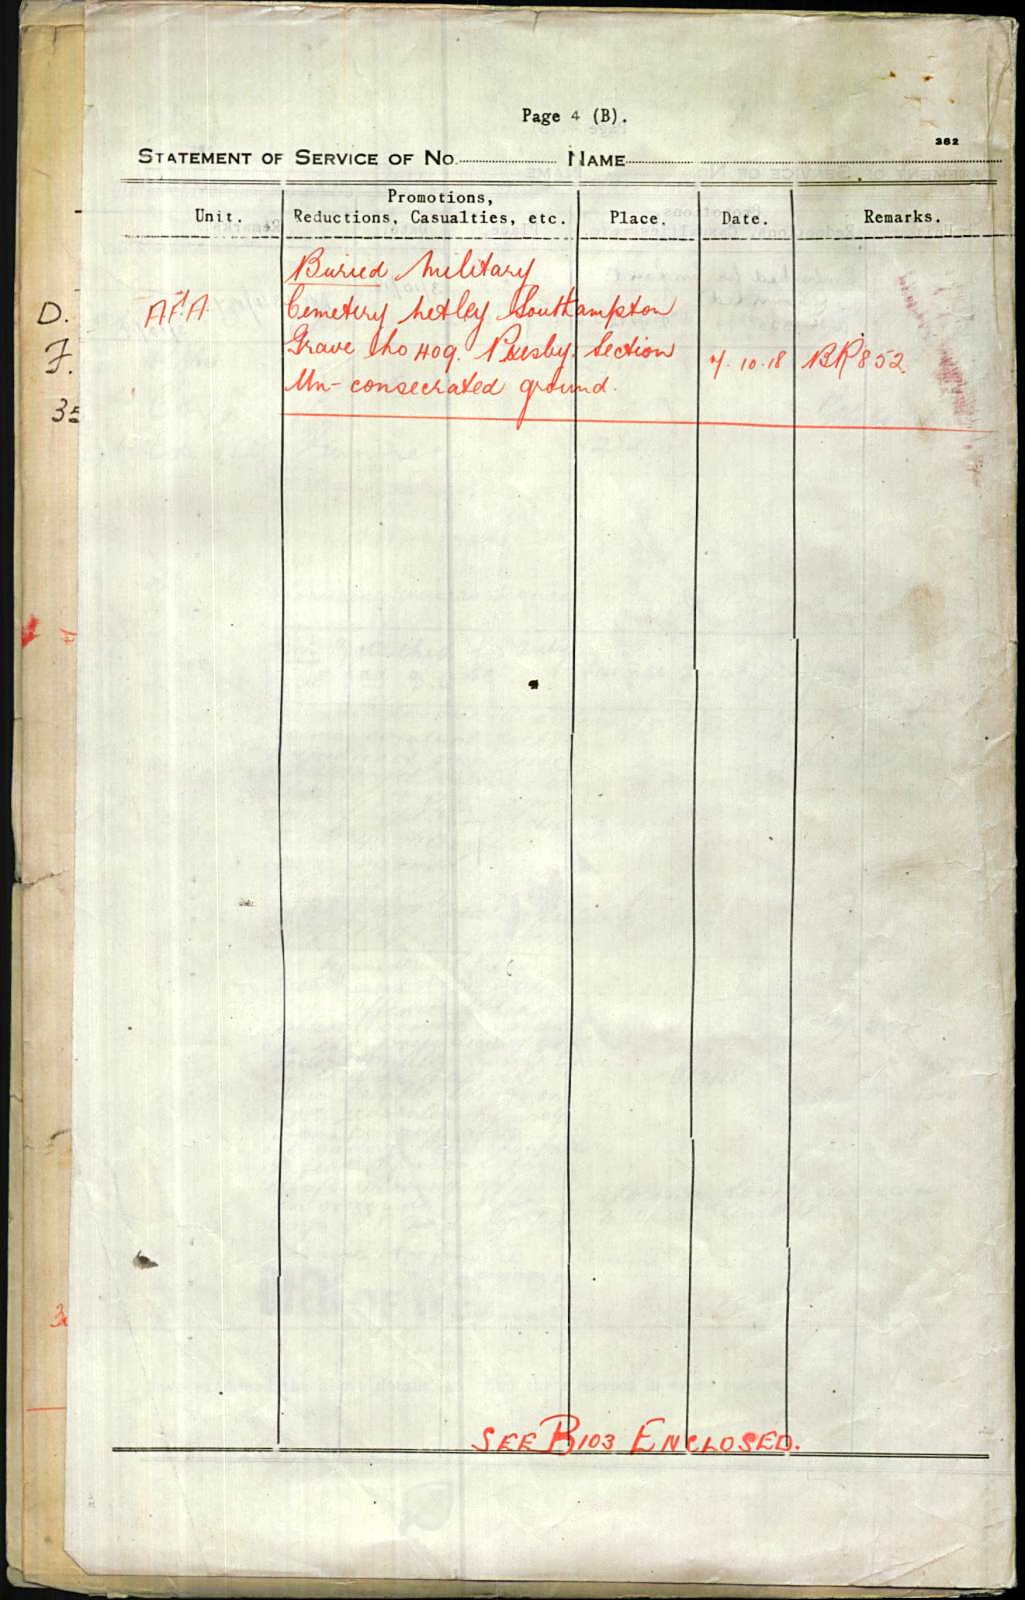 Page 4 (B).
382
STATEMENT OF SERVICE OF No. NAME
Unit. Promotions, Reductions, Casualties, etc. Place. Date. Remarks.
Buried Military
D. Cemetery Netley Southampton
Grave No 409. Presby. Section 7.10.18 BR 852
F.
Un-consecrated ground.
35
SEE B103 ENCLOSED.